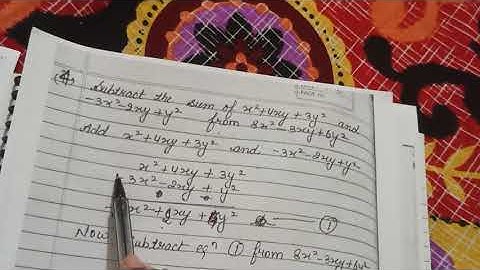 Q. Subtract the sum of x²+4xy+3y² and
-3x²-2xy+y² from 8x²-3xy+6y²
Add x²+4xy+3y² and -3x²-2xy+y²
x²+4xy+3y²
3x²-2xy+y²
x²+ xy+ y² ①
Now subtract eqⁿ ① from 8x²-3xy+6y²